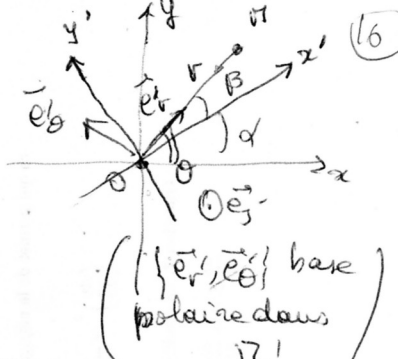 y
y'
M
16
x'
r
β
e⃗'r
e⃗'θ
α
O
θ
x
⊙ e⃗z
{e⃗'r, e⃗'θ} base
polaire dans
R'